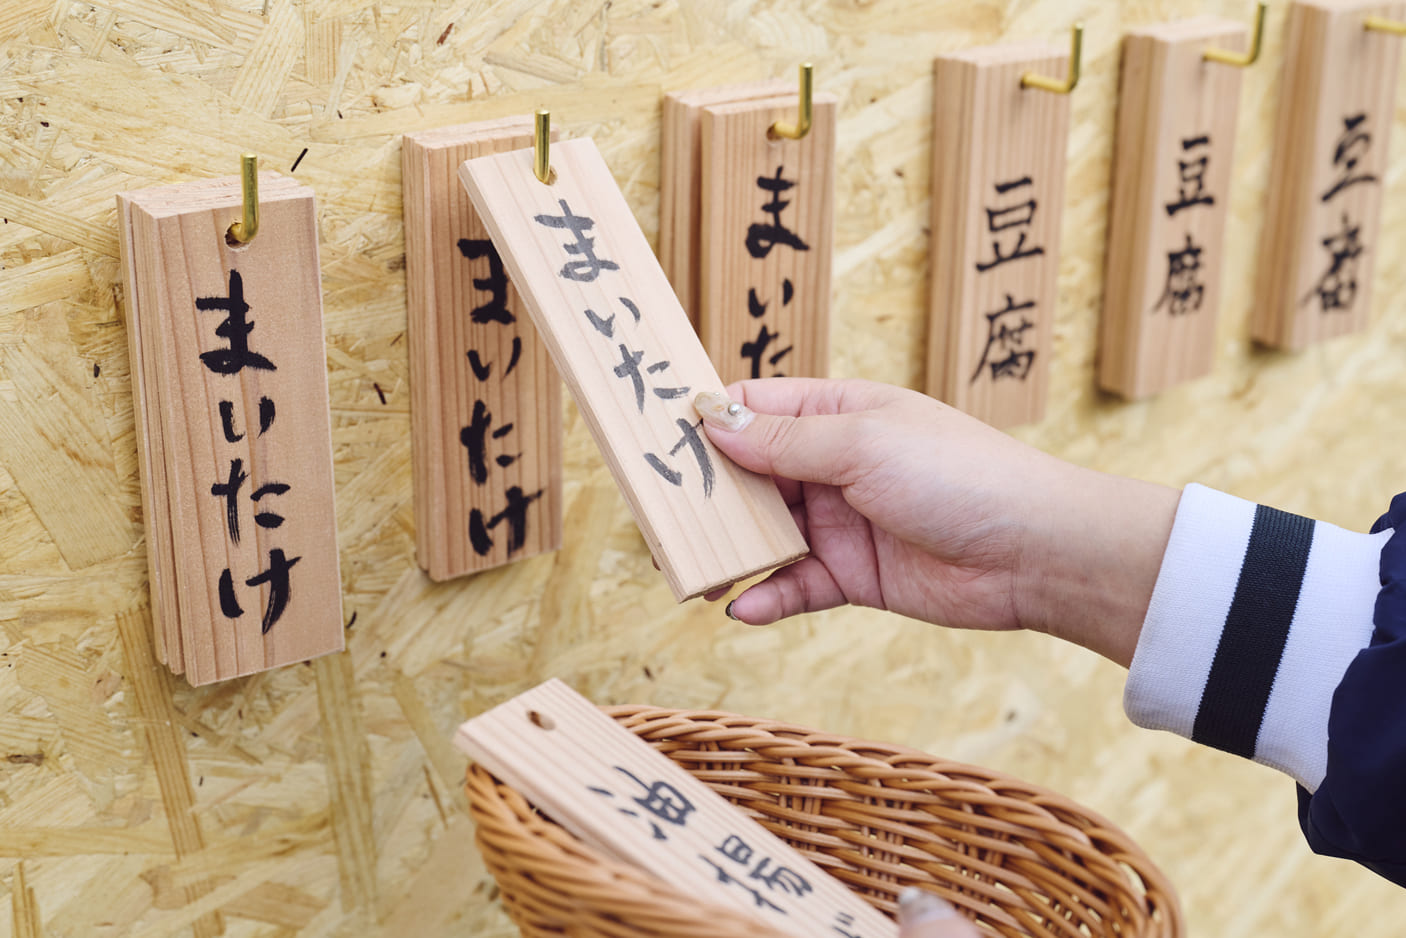 まいたけ
まいたけ
まいたけ
まいた
豆腐
豆腐
豆腐
油揚げ